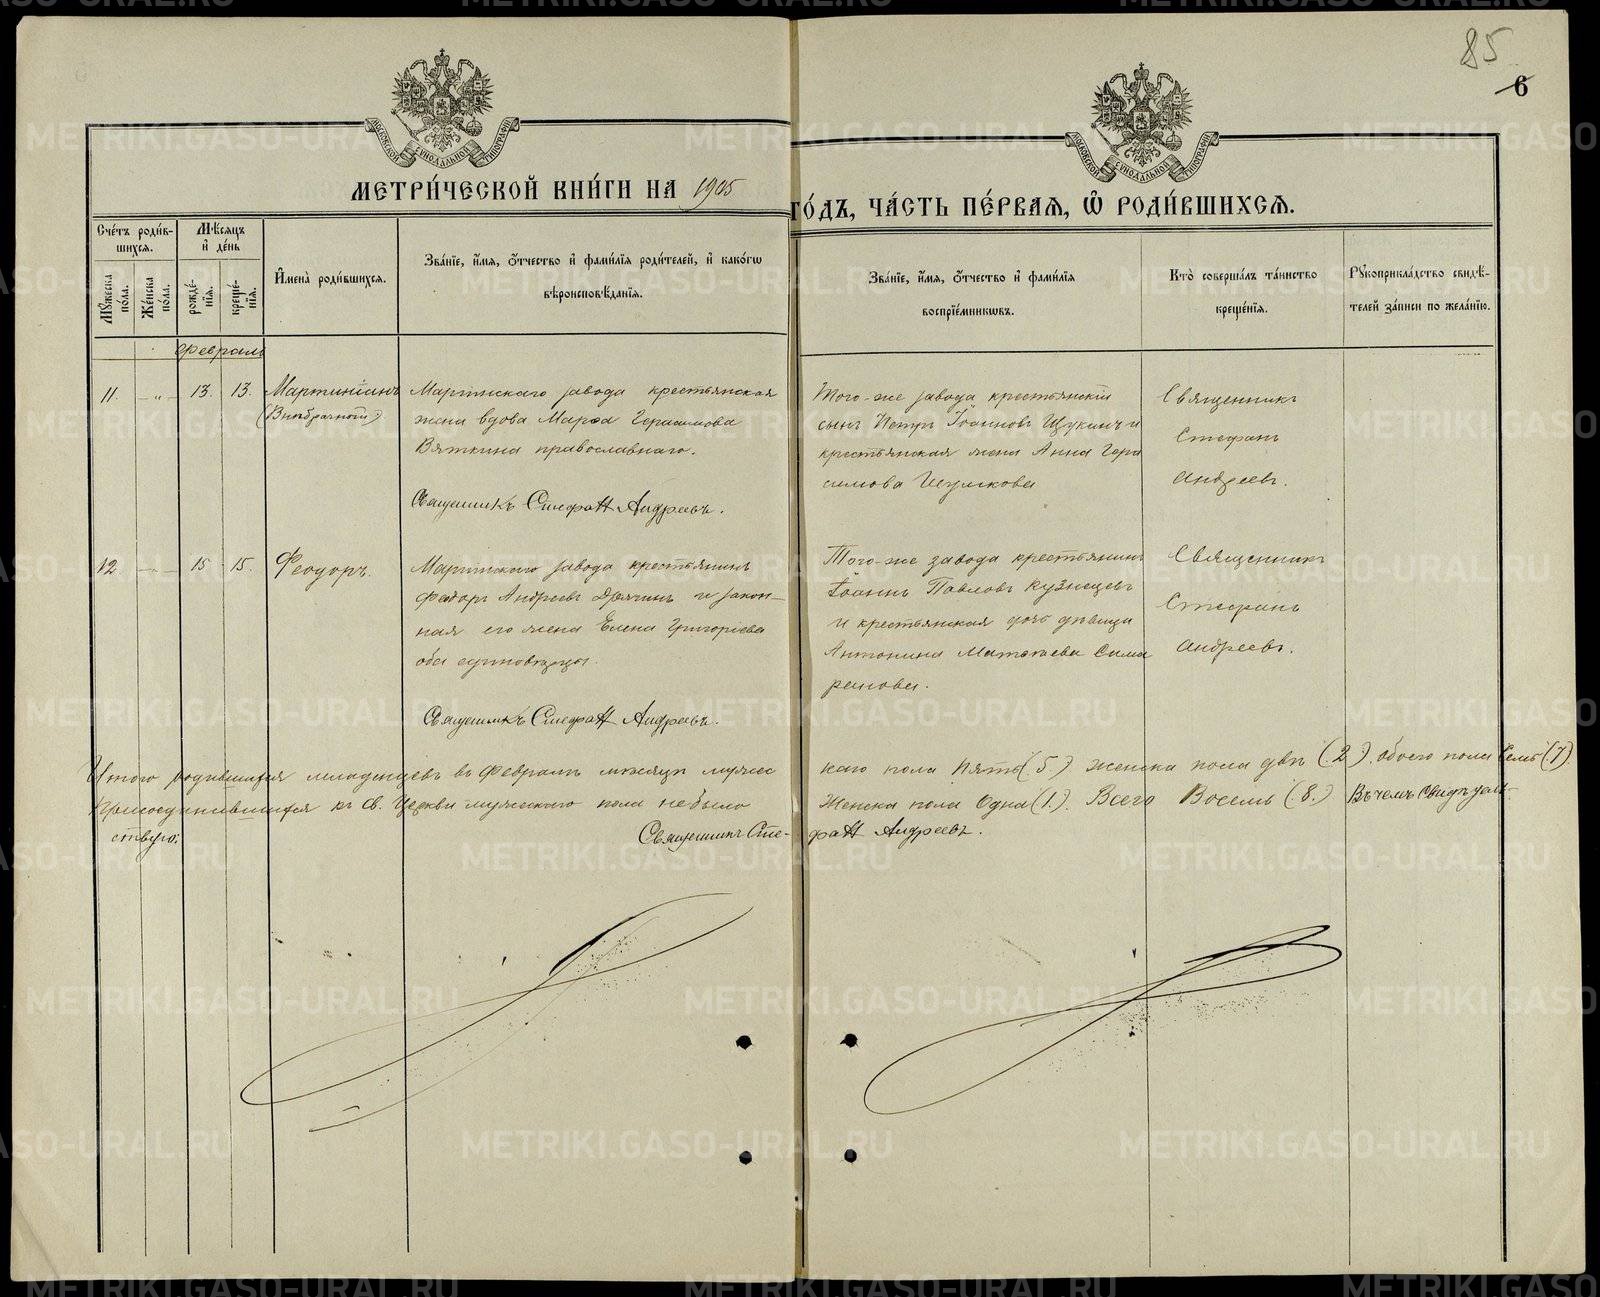 85
6
МОСКОВСКОЙ СѴНОДАЛЬНОЙ ТИПОГРАФІИ
МОСКОВСКОЙ СѴНОДАЛЬНОЙ ТИПОГРАФІИ
МЕТРИ́ЧЕСКОЙ КНИ́ГИ НА 1905
ГО́ДЪ, ЧА́СТЬ ПЕ́РВАѦ, Ѡ҆ РОДИ́ВШИХСѦ.
Сче́тъ роди́вшихсѧ.
Мꙋ́жеска по́ла.
Же́нска по́ла.
Мѣ́сѧцъ и҆ де́нь
рожде́нїѧ.
креще́нїѧ.
И҆мена̀ роди́вшихсѧ.
Зва́нїе, и҆́мѧ, ѻ҆́тчество и҆ фами́лїѧ роди́телей, и҆ како́гѡ
вѣроисповѣ́данїѧ.
Зва́нїе, и҆́мѧ, ѻ҆́тчество и҆ фами́лїѧ
воспрїе́мникѡвъ.
Кто̀ соверша́лъ та́инство
креще́нїѧ.
Рꙋкоприкла́дство свидѣ́-
телей за́писи по жела́нїю.
Февраль
11. — „ — 13. 13. Мартиніанъ
(Внѣбрачный)
Маріинскаго завода крестьянская
жена вдова Марѳа Герасимова
Вяткина православнаго.
Священникъ Стефанъ Андреевъ.
Того-же завода крестьянскій
сынъ Петръ Іоанновъ Щукинъ и
крестьянская жена Анна Гера
симова
Священникъ
Стефанъ
Андреевъ.
12. — 15 15. Ѳеодоръ.
Маріинскаго завода крестьянинъ
Ѳеодоръ Андреевъ и закон-
ная его жена Елена Григоріева
оба единовѣрцы.
Священникъ Стефанъ Андреевъ.
Того-же завода крестьянинъ
Іоаннъ Павловъ Кузнецовъ
и крестьянская дочь дѣвица
Антонина Матѳеева
Священникъ
Стефанъ
Андреевъ.
Итого родившихся младенцевъ въ Февралѣ мѣсяцѣ мужес
каго пола Пять (5.) женска пола двѣ (2.) обоего пола Семь (7)
Присоединившихся къ св. Церкви мужескаго пола не было
Женска пола Одна (1.). Всего Восемь (8.) Въ чемъ Свидѣтель-
ствую:
Священникъ Сте-
фанъ Андреевъ.
METRIKI.GASO-URAL.RU